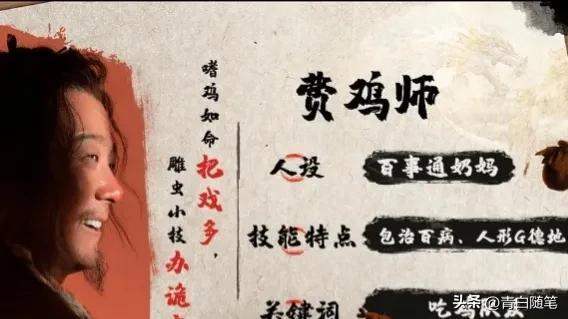 嗜鸡如命把戏多，
雕虫小技办诡
费鸡师
人设
百事通奶妈
技能特点
包治百病、人形G德地
关键词
吃鸡
头条 @青白随笔